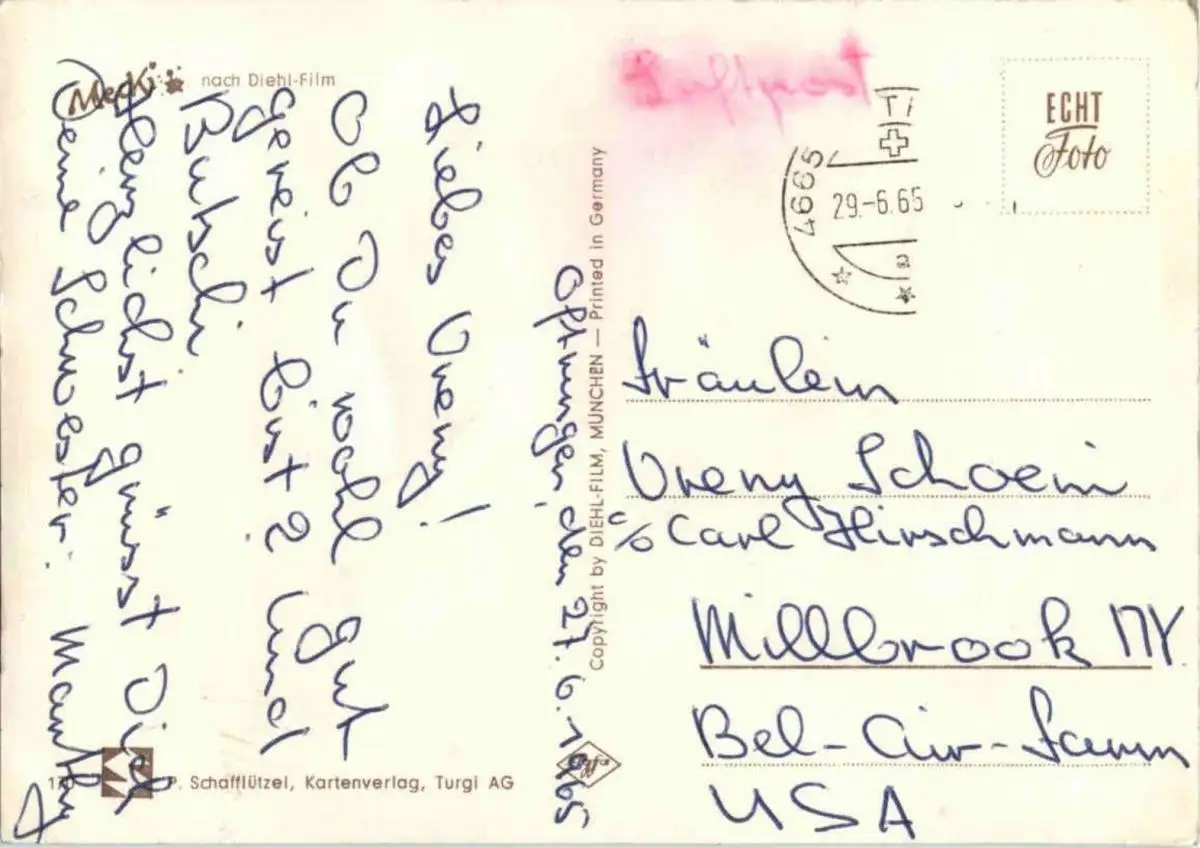 Mecki nach Diehl-Film
Luftpost
ECHT
Foto
4665
29.-6.65
a
Oftringen, den 27.6.1965
Liebes Vreny!
Ob Du wohl gut
gereist bist? Und
Butschi
Herzlichst grüsst Dich
Deine Schwester:
Copyright by DIEHL-FILM, MÜNCHEN — Printed in Germany
Fräulein
Vreny Schoeni
c/o Carl Hirschmann
Millbrook NY.
Bel-Air-Farm
USA
P. Schafflützel, Kartenverlag, Turgi AG
Agfa